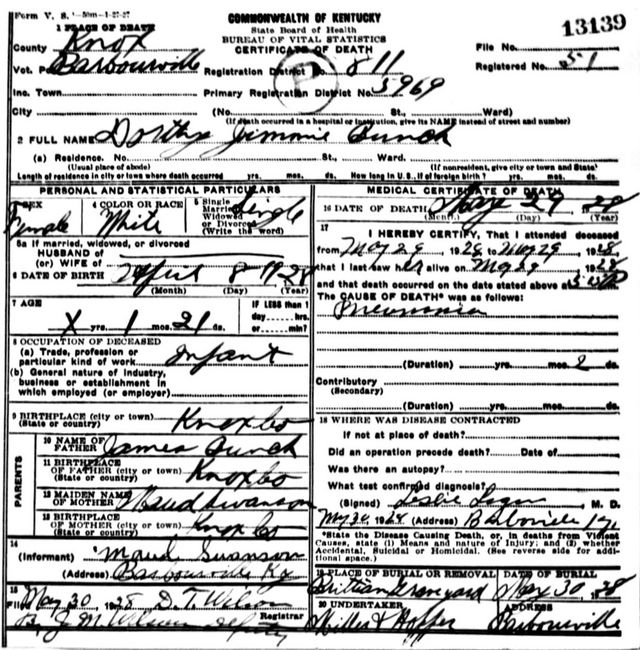 Form V. S. 1-50m-1-27-27
COMMONWEALTH OF KENTUCKY
State Board of Health
BUREAU OF VITAL STATISTICS
CERTIFICATE OF DEATH
13139
1 PLACE OF DEATH
County Knox
File No.
Vot. Barbourville Registration District No. 811 Registered No. 51
Inc. Town Primary Registration District No. 5969
City (No. St., Ward)
(If death occurred in a hospital or institution, give its NAME instead of street and number)
2 FULL NAME Jimmie
(a) Residence. No. St., Ward.
(Usual place of abode) (If nonresident, give city or town and State)
Length of residence in city or town where death occurred yrs. mos. ds. How long in U. S., if of foreign birth? yrs. mos. ds.
PERSONAL AND STATISTICAL PARTICULARS
3 SEX Female 4 COLOR OR RACE White 5 Single Married Widowed or Divorced (Write the word) Single
5a If married, widowed, or divorced
HUSBAND of
(or) WIFE of
6 DATE OF BIRTH April 8 1928
(Month) (Day) (Year)
7 AGE IF LESS than 1
X yrs. 1 mos. 21 ds. day, hrs. or min.
8 OCCUPATION OF DECEASED
(a) Trade, profession or
particular kind of work Infant
(b) General nature of industry,
business or establishment in
which employed (or employer)
9 BIRTHPLACE (city or town)
(State or country) Knox Co
PARENTS
10 NAME OF
FATHER James
11 BIRTHPLACE
OF FATHER (city or town)
(State or country) Knox Co
12 MAIDEN NAME
OF MOTHER Maud Swanson
13 BIRTHPLACE
OF MOTHER (city or town)
(State or country) Knox Co
14
(Informant) Maud Swanson
(Address) Barbourville Ky
15
Filed May 30 1928 D. T.
Registrar
By J M Wilson Deputy
MEDICAL CERTIFICATE OF DEATH
16 DATE OF DEATH May 29 1928
(Month) (Day) (Year)
17
I HEREBY CERTIFY, That I attended deceased
from May 29 1928 to May 29 1928
that I last saw her alive on May 29 1928
and that death occurred on the date stated above at
The CAUSE OF DEATH* was as follows:
Pneumonia
(Duration) yrs. mos. 2 ds.
Contributory
(Secondary)
(Duration) yrs. mos. ds.
18 WHERE WAS DISEASE CONTRACTED
If not at place of death?
Did an operation precede death? Date of
Was there an autopsy?
What test confirmed diagnosis?
(Signed) Leslie Logan M. D.
May 30, 1928 (Address) Barbourville Ky
*State the Disease Causing Death, or, in deaths from Violent
Causes, state (1) Means and nature of Injury; and (2) whether
Accidental, Suicidal or Homicidal. (See reverse side for addi-
tional space.)
19 PLACE OF BURIAL OR REMOVAL DATE OF BURIAL
Graveyard May 30 1928
20 UNDERTAKER ADDRESS
Miller & Hopper Barbourville